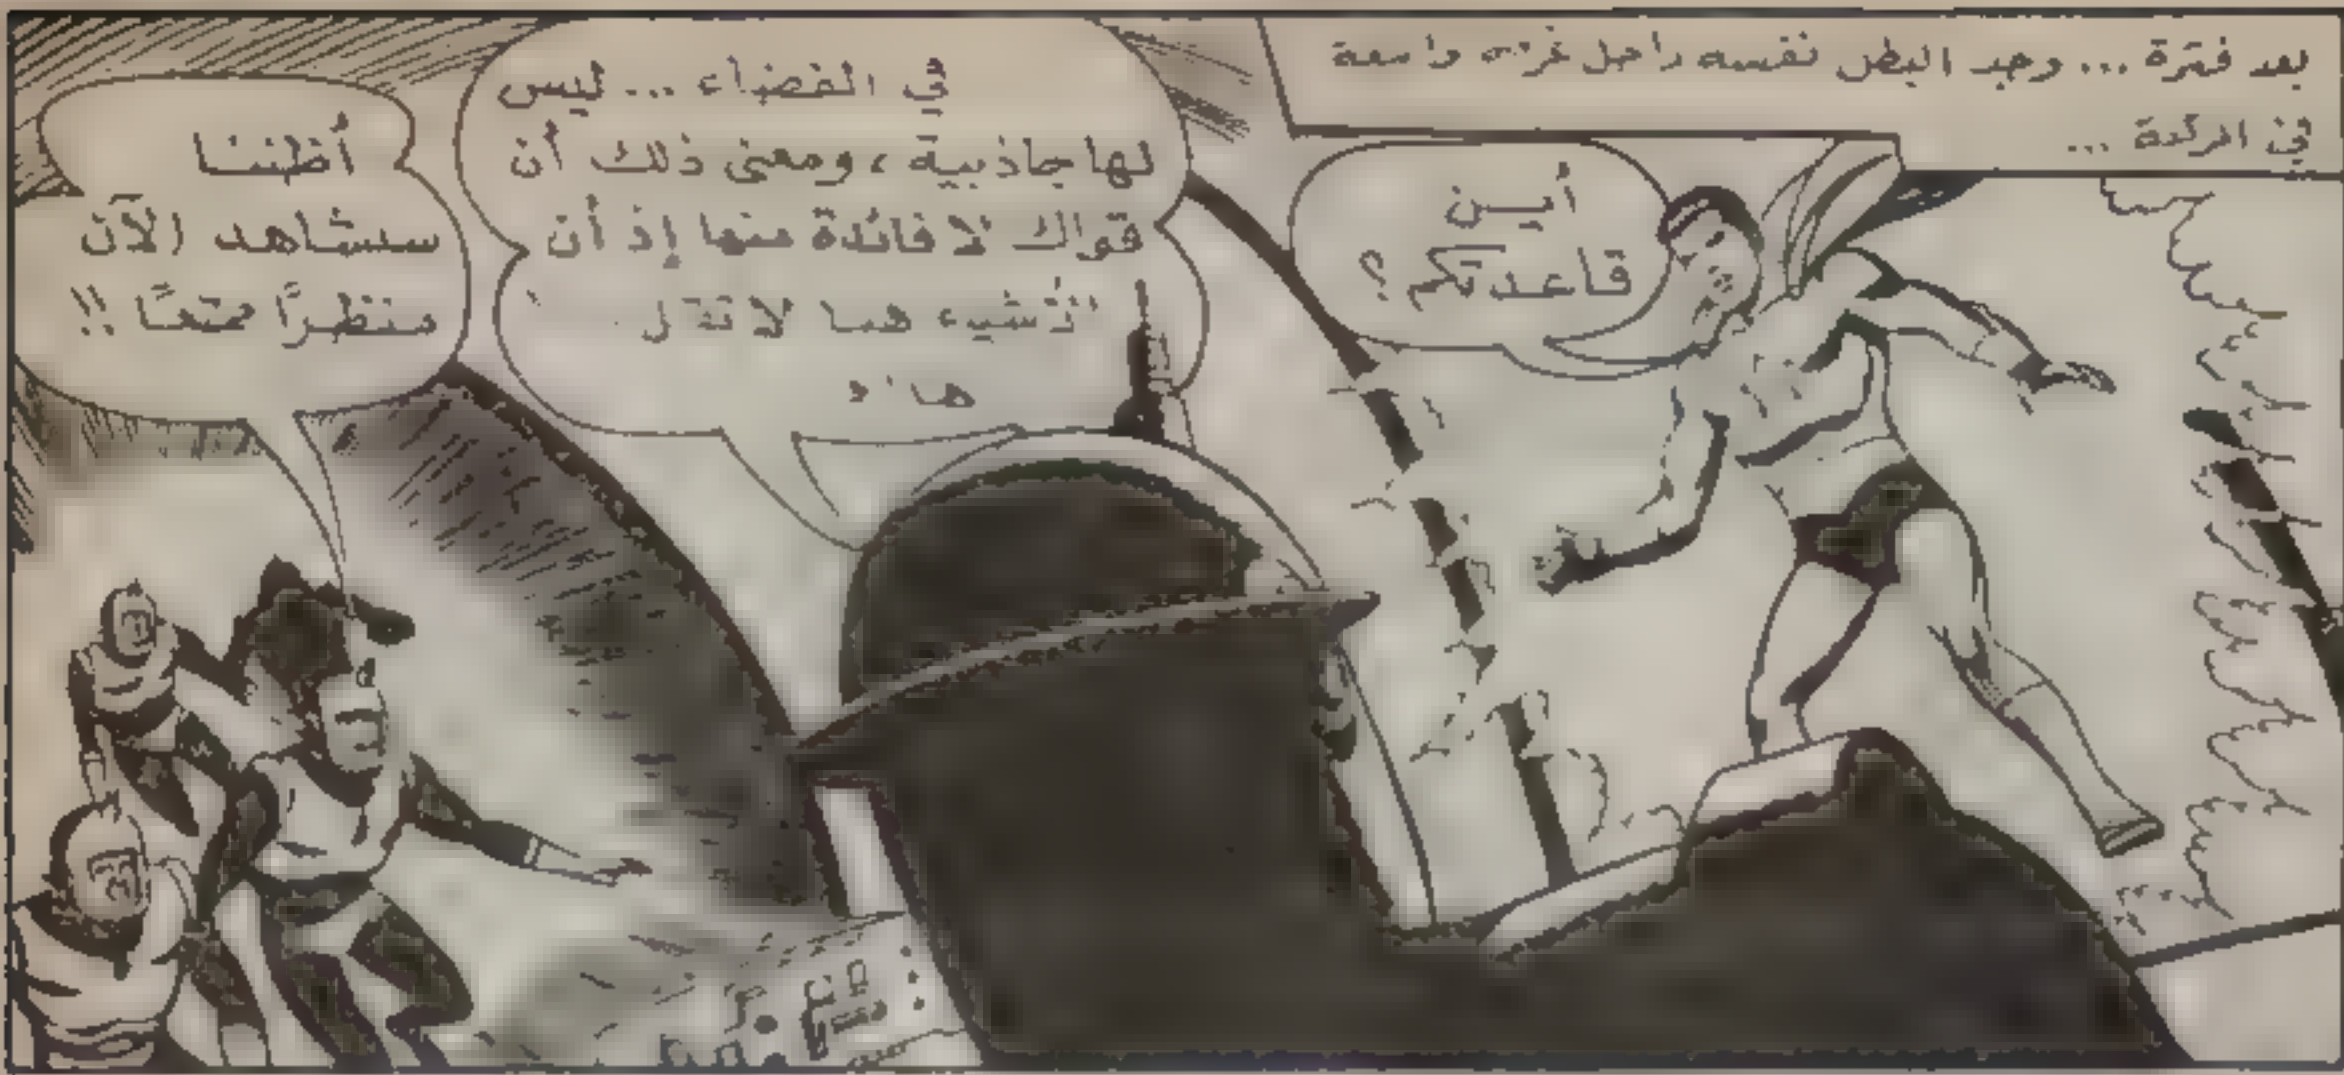 بعد فترة ... وجد البطل نفسه داخل غرفة واسعة
في المركبة ...
أين
قاعدتكم ؟
في الفضاء ... ليس
لها جاذبية ، ومعنى ذلك أن
قواك لا فائدة منها إذ أن
الأشياء هنا لا
أظننا
سنشاهد الآن
منظراً ممتعاً !!